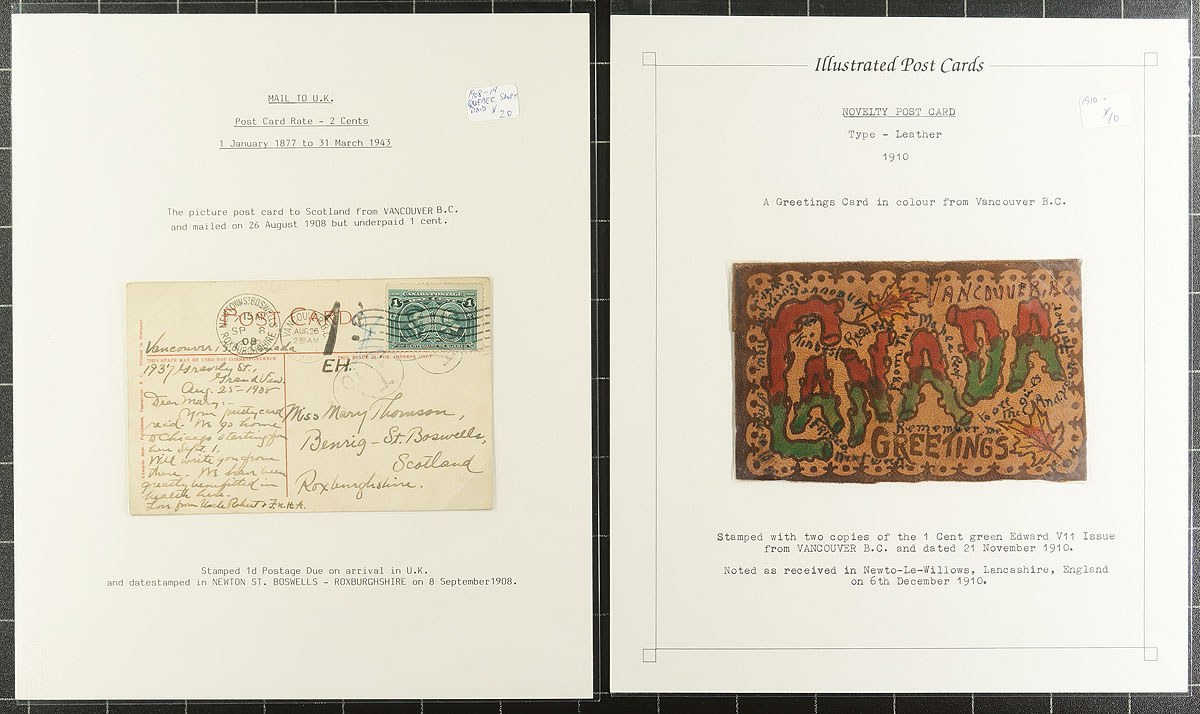 MAIL TO U.K.
Post Card Rate - 2 Cents
1 January 1877 to 31 March 1943
1908-19
QUEBEC
20
The picture post card to Scotland from VANCOUVER B.C.
and mailed on 26 August 1908 but underpaid 1 cent.
POST CARD
CANADA POSTAGE
1 1
AUG 26
SP 8
08
EH.
THIS SPACE MAY BE USED FOR CORRESPONDENCE
THIS SPACE IS FOR ADDRESS ONLY
Vancouver,
1937 Gravely St.,
Grand View.
Aug. 25 - 1908
Dear Mary:-
Your pretty card
recd. We go home
to Chicago starting from
here Sept. 1.
Will write you from
there. We have been
greatly benefitted in
health here.
Love from Uncle Robert &
Miss Mary Thomson,
Benrig - St. Boswells,
Scotland
Roxburghshire.
Stamped 1d Postage Due on arrival in U.K.
and datestamped in NEWTON ST. BOSWELLS - ROXBURGHSHIRE on 8 September1908.
Illustrated Post Cards
NOVELTY POST CARD
Type - Leather
1910
1910 -
/10
A Greetings Card in colour from Vancouver B.C.
VANCOUVER, B.C.
CANADA
Kindest Regards
from the
Remember me
to all
GREETINGS
Stamped with two copies of the 1 Cent green Edward V11 Issue
from VANCOUVER B.C. and dated 21 November 1910.
Noted as received in Newto-Le-Willows, Lancashire, England
on 6th December 1910.